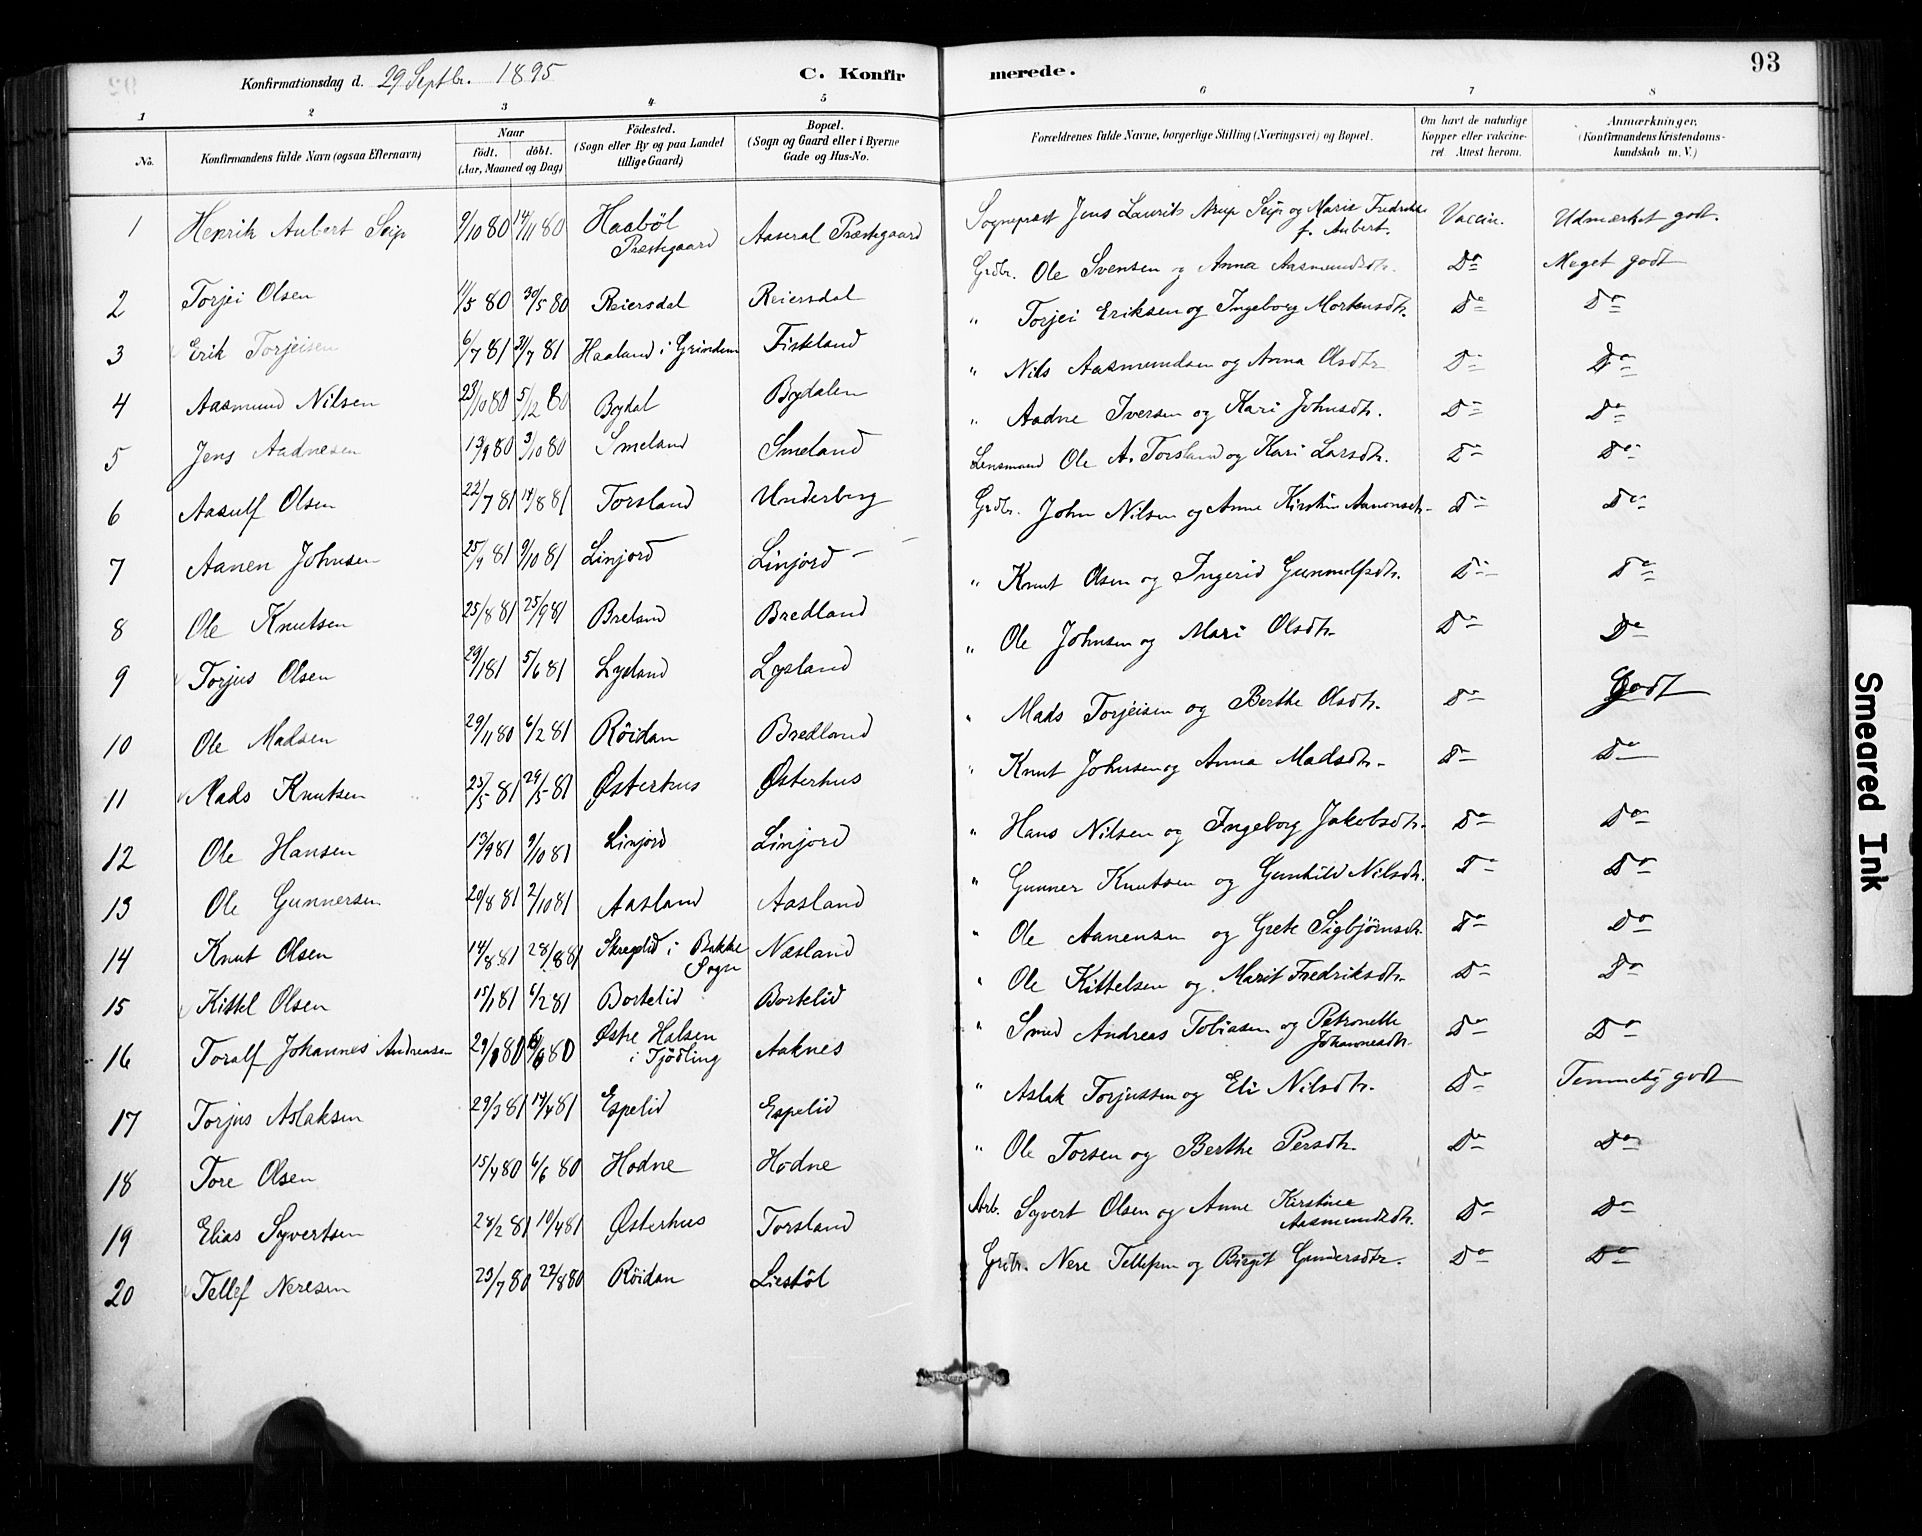 Konfirmationsdag d. 29 Septbr. 1895 C. Konfir merede. 93
1 2 3 4 5 6 7 8
No. Konfirmandens fulde Navn (ogsaa Efternavn) Naar født. døbt. (Aar, Maaned og Dag) Fødested. (Sogn eller By og paa Landet tillige Gaard) Bopæl. (Sogn og Gaard eller i Byerne Gade og Hus-No. Forældrenes fulde Navne, borgerlige Stilling (Næringsvei) og Bopæl. Om havt de naturlige Kopper eller vakcineret. Attest herom. Anmærkninger. (Konfirmandens Kristendomskundskab m. V.)
1 Henrik Aubert Seip 9/10 80 14/11 80 Haabøl Præstegaard Aaseral Præstegaard Sognepræst Jens Laurits Arup Seip og Marie Fredrikke f. Aubert. Vaccin. Udmærket godt.
2 Torjei Olsen 11/5 80 30/5 80 Reiersdal Reiersdal Grdbr. Ole Svensen og Anna Aasmundsdtr. Do Meget godt
3 Erik Torjeisen 6/7 81 31/7 81 Haaland i Grindem Fiskland " Torjei Eriksen og Ingeborg Mortensdtr. Do Do
4 Aasmund Nilsen 23/10 80 5/12 80 Bydal Bydalen " Nils Aasmundsen og Anna Olsdtr Do Do
5 Jens Aadnesen 13/9 80 3/10 80 Smeland Smeland " Aadne Iversen og Kari Johnsdtr. Do Do
6 Aasulf Olsen 22/7 81 14/8 81 Torsland Underberg Lensmand Ole A. Torsland og Kari Larsdtr. Do Do
7 Aanen Johnsen 25/9 81 9/10 81 Linjord Linjord Grdbr. John Nilsen og Anne Kirstin Aanonsdtr. Do Do
8 Ole Knutsen 25/8 81 25/9 81 Breland Bredland " Knut Olsen og Ingerid Gunnulfsdtr. Do Do
9 Torjus Olsen 29/1 81 5/6 81 Lysland Lysland " Ole Johnsen og Mari Olsdtr. Do Do
10 Ole Madsen 29/11 80 6/2 81 Røidan Bredland " Mads Torjeisen og Berthe Olsdtr. Do Godt
11 Mads Knutsen 25/5 81 29/5 81 Østerhus Østerhus " Knut Johnsen og Anna Madsdtr. Do Do
12 Ole Hansen 13/9 81 9/10 81 Linjord Linjord " Hans Nilsen og Ingeborg Jakobsdtr. Do Do
13 Ole Gunnersen 20/8 81 2/10 81 Aasland Aasland " Gunner Knutsen og Gunhild Nilsdtr. Do Do
14 Knut Olsen 14/8 81 28/8 81 Skregelid i Bakke Sogn Næsland " Ole Aanensen og Grete Sigbjørnsdtr. Do Do
15 Kittel Olsen 15/1 81 6/2 81 Bortelid Bortelid " Ole Kittelsen og Marit Fredriksdtr. Do Do
16 Toralf Johannes Andreasen 80 80 Østre Halsen i Tjødling Aaknes " Smed Andreas Tobiasen og Petronelle Johannesdtr. Do Do
17 Torjus Aslaksen 29/3 81 14/4 81 Espelid Espelid " Aslak Torjussen og Eli Nilsdtr. Do Temmelig godt
18 Tore Olsen 15/4 80 6/6 80 Hodne Hodne " Ole Torsen og Berthe Persdtr. Do Do
19 Elias Syvertsen 24/2 81 10/4 81 Østerhus Torsland Arb. Syvert Olsen og Anne Kirstine Aasmundsdtr. Do Do
20 Tellef Neresen 23/7 80 22/8 80 Røidan Liestøl Grdbr. Nere Tellefsen og Birgit Gundersdtr. Do Do
Smeared Ink